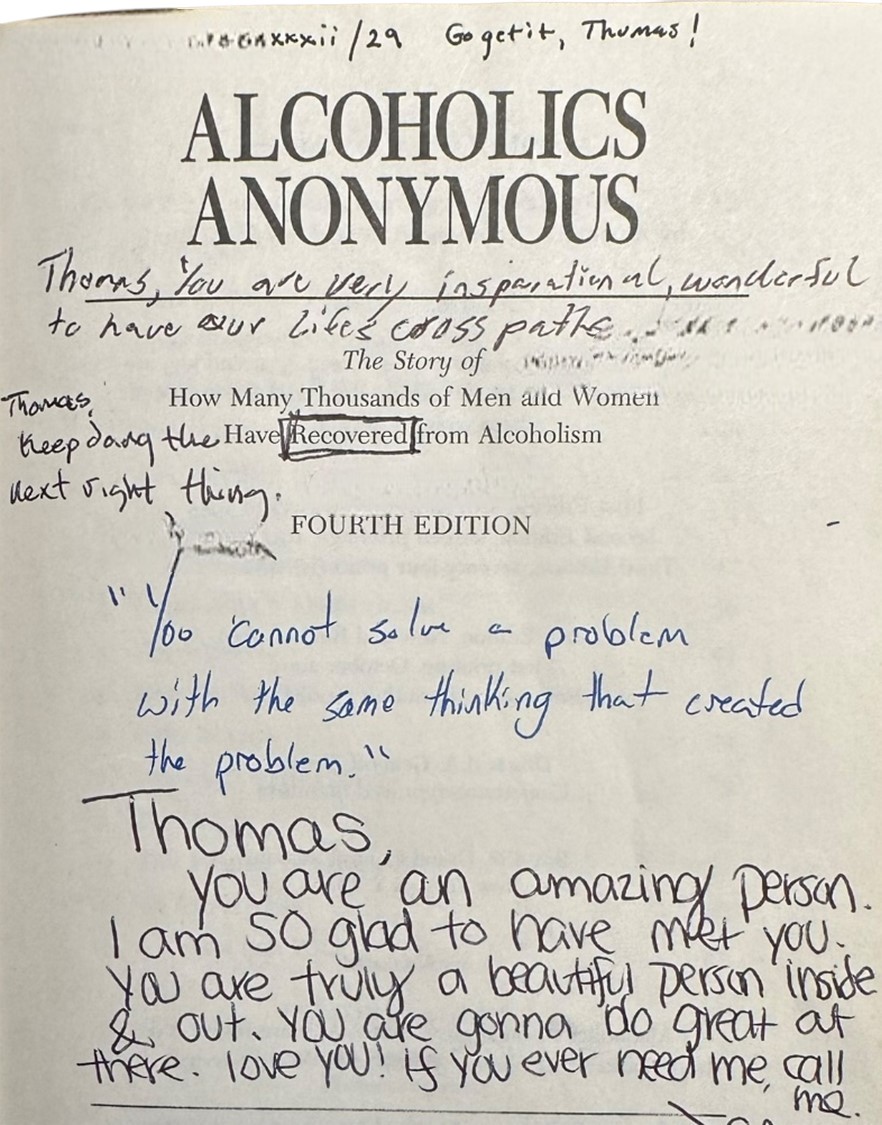 xxxii/29 Go get it, Thomas!
ALCOHOLICS
ANONYMOUS
Thomas, You are very insparational, wonderful
to have our lifes cross paths.
The Story of
How Many Thousands of Men and Women
Have Recovered from Alcoholism
Thomas,
Keep doing the
next right thing.
FOURTH EDITION
"You cannot solve a problem
with the same thinking that created
the problem."
Thomas,
You are an amazing person.
I am SO glad to have met you.
You are truly a beautiful person inside
& out. You are gonna do great out
there. love you! if you ever need me, call
me.